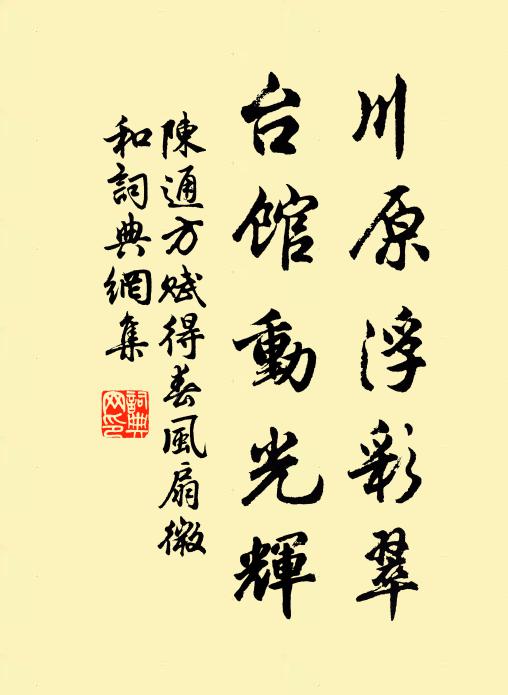 川原浮彩翠
台馆動光輝
陳通方赋得春風扇微
和詞典網集
詞典
网印